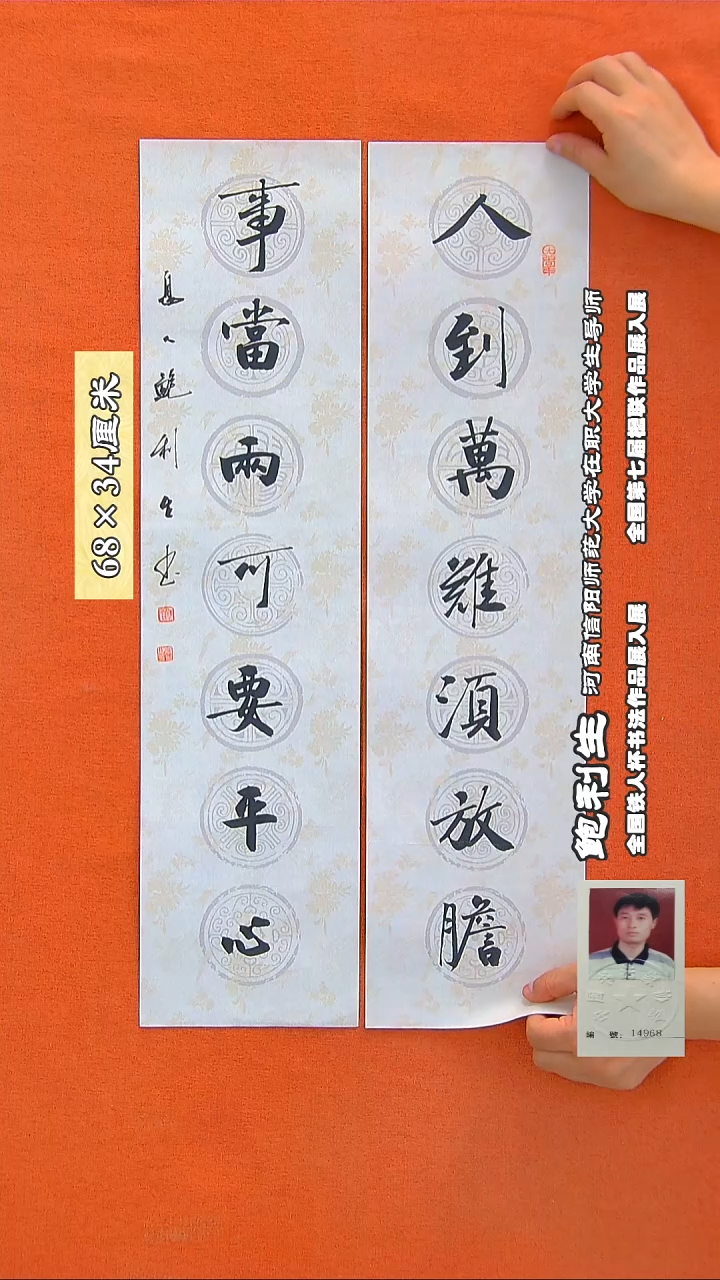 人到萬難須放膽
事當兩可要平心
息人鮑利生书
68×34厘米
鲍利生
河南信阳师范大学在职大学生导师
全国铁人杯书法作品展入展
全国第七届楹联作品展入展
編 號: 14968